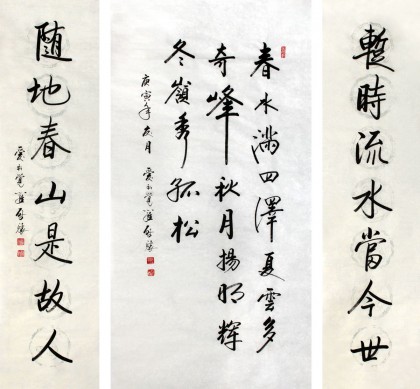 暫時流水當今世
春水滿四澤夏雲多
奇峰秋月揚明輝
冬嶺秀孤松
庚寅年
隨地春山是故人